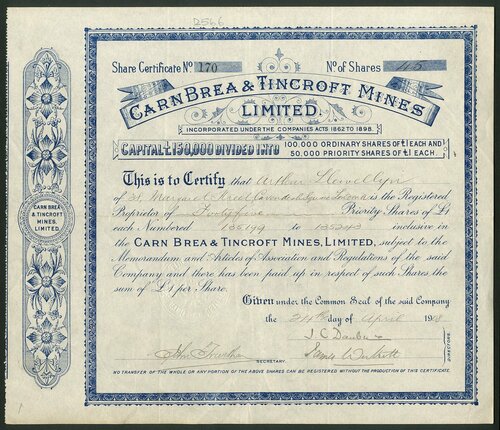 2566
Share Certificate No. 170 No. of Shares 45
CARN BREA & TINCROFT MINES
LIMITED.
INCORPORATED UNDER THE COMPANIES ACTS 1862 TO 1898.
CAPITAL £150,000 DIVIDED INTO 100,000 ORDINARY SHARES OF £1 EACH AND
50,000 PRIORITY SHARES OF £1 EACH.
This is to Certify that Arthur Llewellyn
of 31, Margaret Street Cavendish Square London is the Registered
Proprietor of Forty five Priority Shares of £1
each Numbered 135199 to 135243 inclusive in
the CARN BREA & TINCROFT MINES, LIMITED, subject to the
Memorandum and Articles of Association and Regulations of the said
Company and there has been paid up in respect of such Shares the
sum of £1 per Share.
Given under the Common Seal of the said Company
the 24th day of April 1908
J C Daubuz
SECRETARY.
DIRECTORS.
NO TRANSFER OF THE WHOLE OR ANY PORTION OF THE ABOVE SHARES CAN BE REGISTERED WITHOUT THE PRODUCTION OF THIS CERTIFICATE.
CARN BREA
& TINCROFT
MINES,
LIMITED.